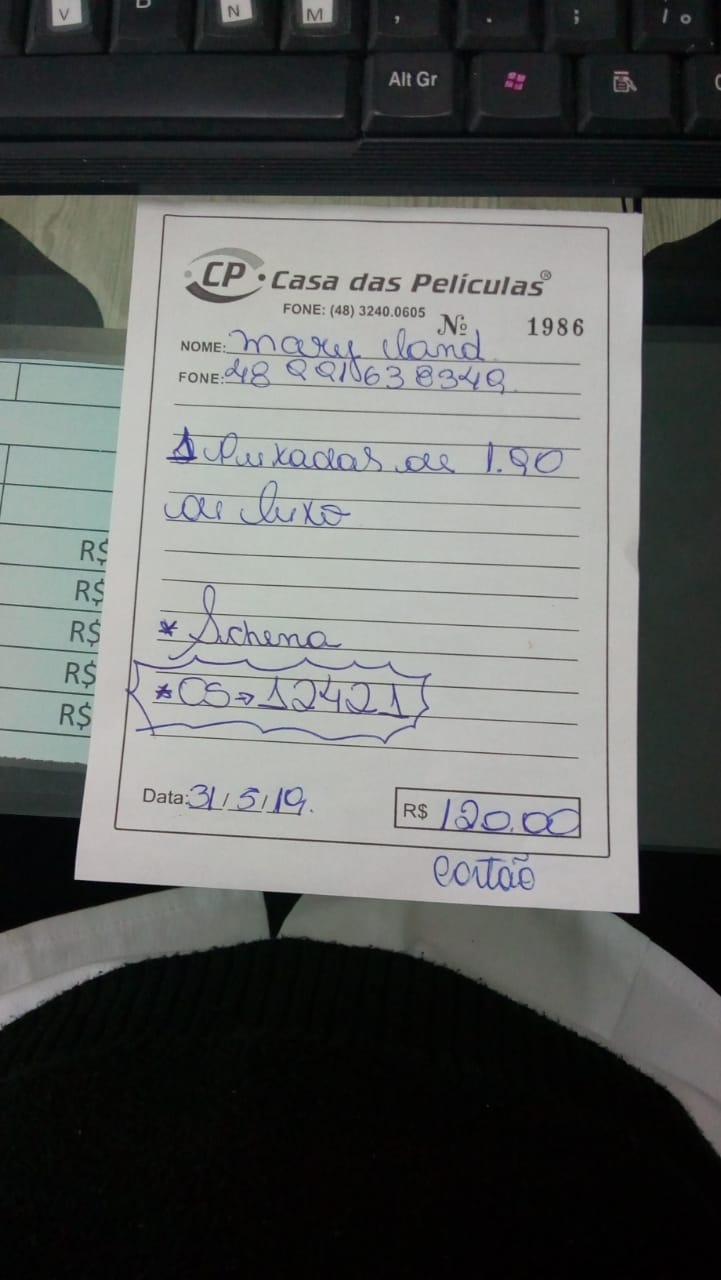 V
N
M
,
.
;
Alt Gr
CP Casa das Películas®
FONE: (48) 3240.0605
Nº 1986
NOME: Mary
FONE: 48 991638349
Puxadas de 1.90
de luxo
* Schena
* OS⇒12421
Data: 31/5/19.
R$ 120.00
Cartão
R$
R$
R$
R$
R$